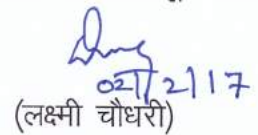 02/2/17
(लक्ष्मी चौधरी)